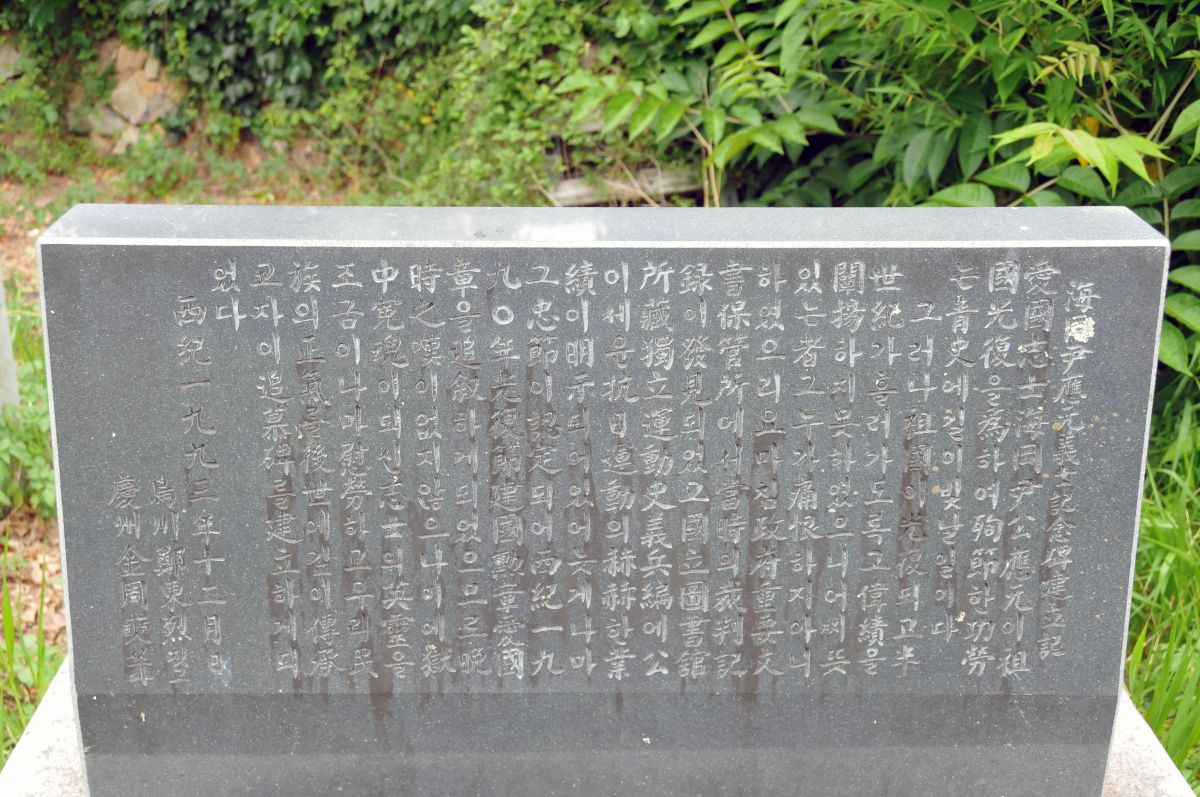 海 尹應元義士記念碑建立記
愛國志士海岡尹公應元이祖
國光復을為하여殉節한功勞
는青史에길이빛날일이다
그러나祖國이光復되고半
世紀가흘러가도록그偉績을
闡揚하지못하였으니어찌뜻
있는者그누가痛恨하지아니
하였으리요마침政府重要文
書保管所에서當時의裁判記
録이發見되었고國立圖書舘
所藏獨立運動史義兵編에公
이세운抗日運動의赫赫한業
績이明示되어있어늦게나마
그忠節이認定되어西紀一九
九〇年光復節建國勳章愛國
章을追敘하게되었으므로晚
時之嘆이없지않으나이에獄
中冤魂이되신志士의英靈을
조금이나마慰勞하고우리民
族의正氣를後世에길이傳承
고자이追慕碑를建立하게되
었다
西紀一九九三年十二月 日
烏川鄭東烈 
慶州金周